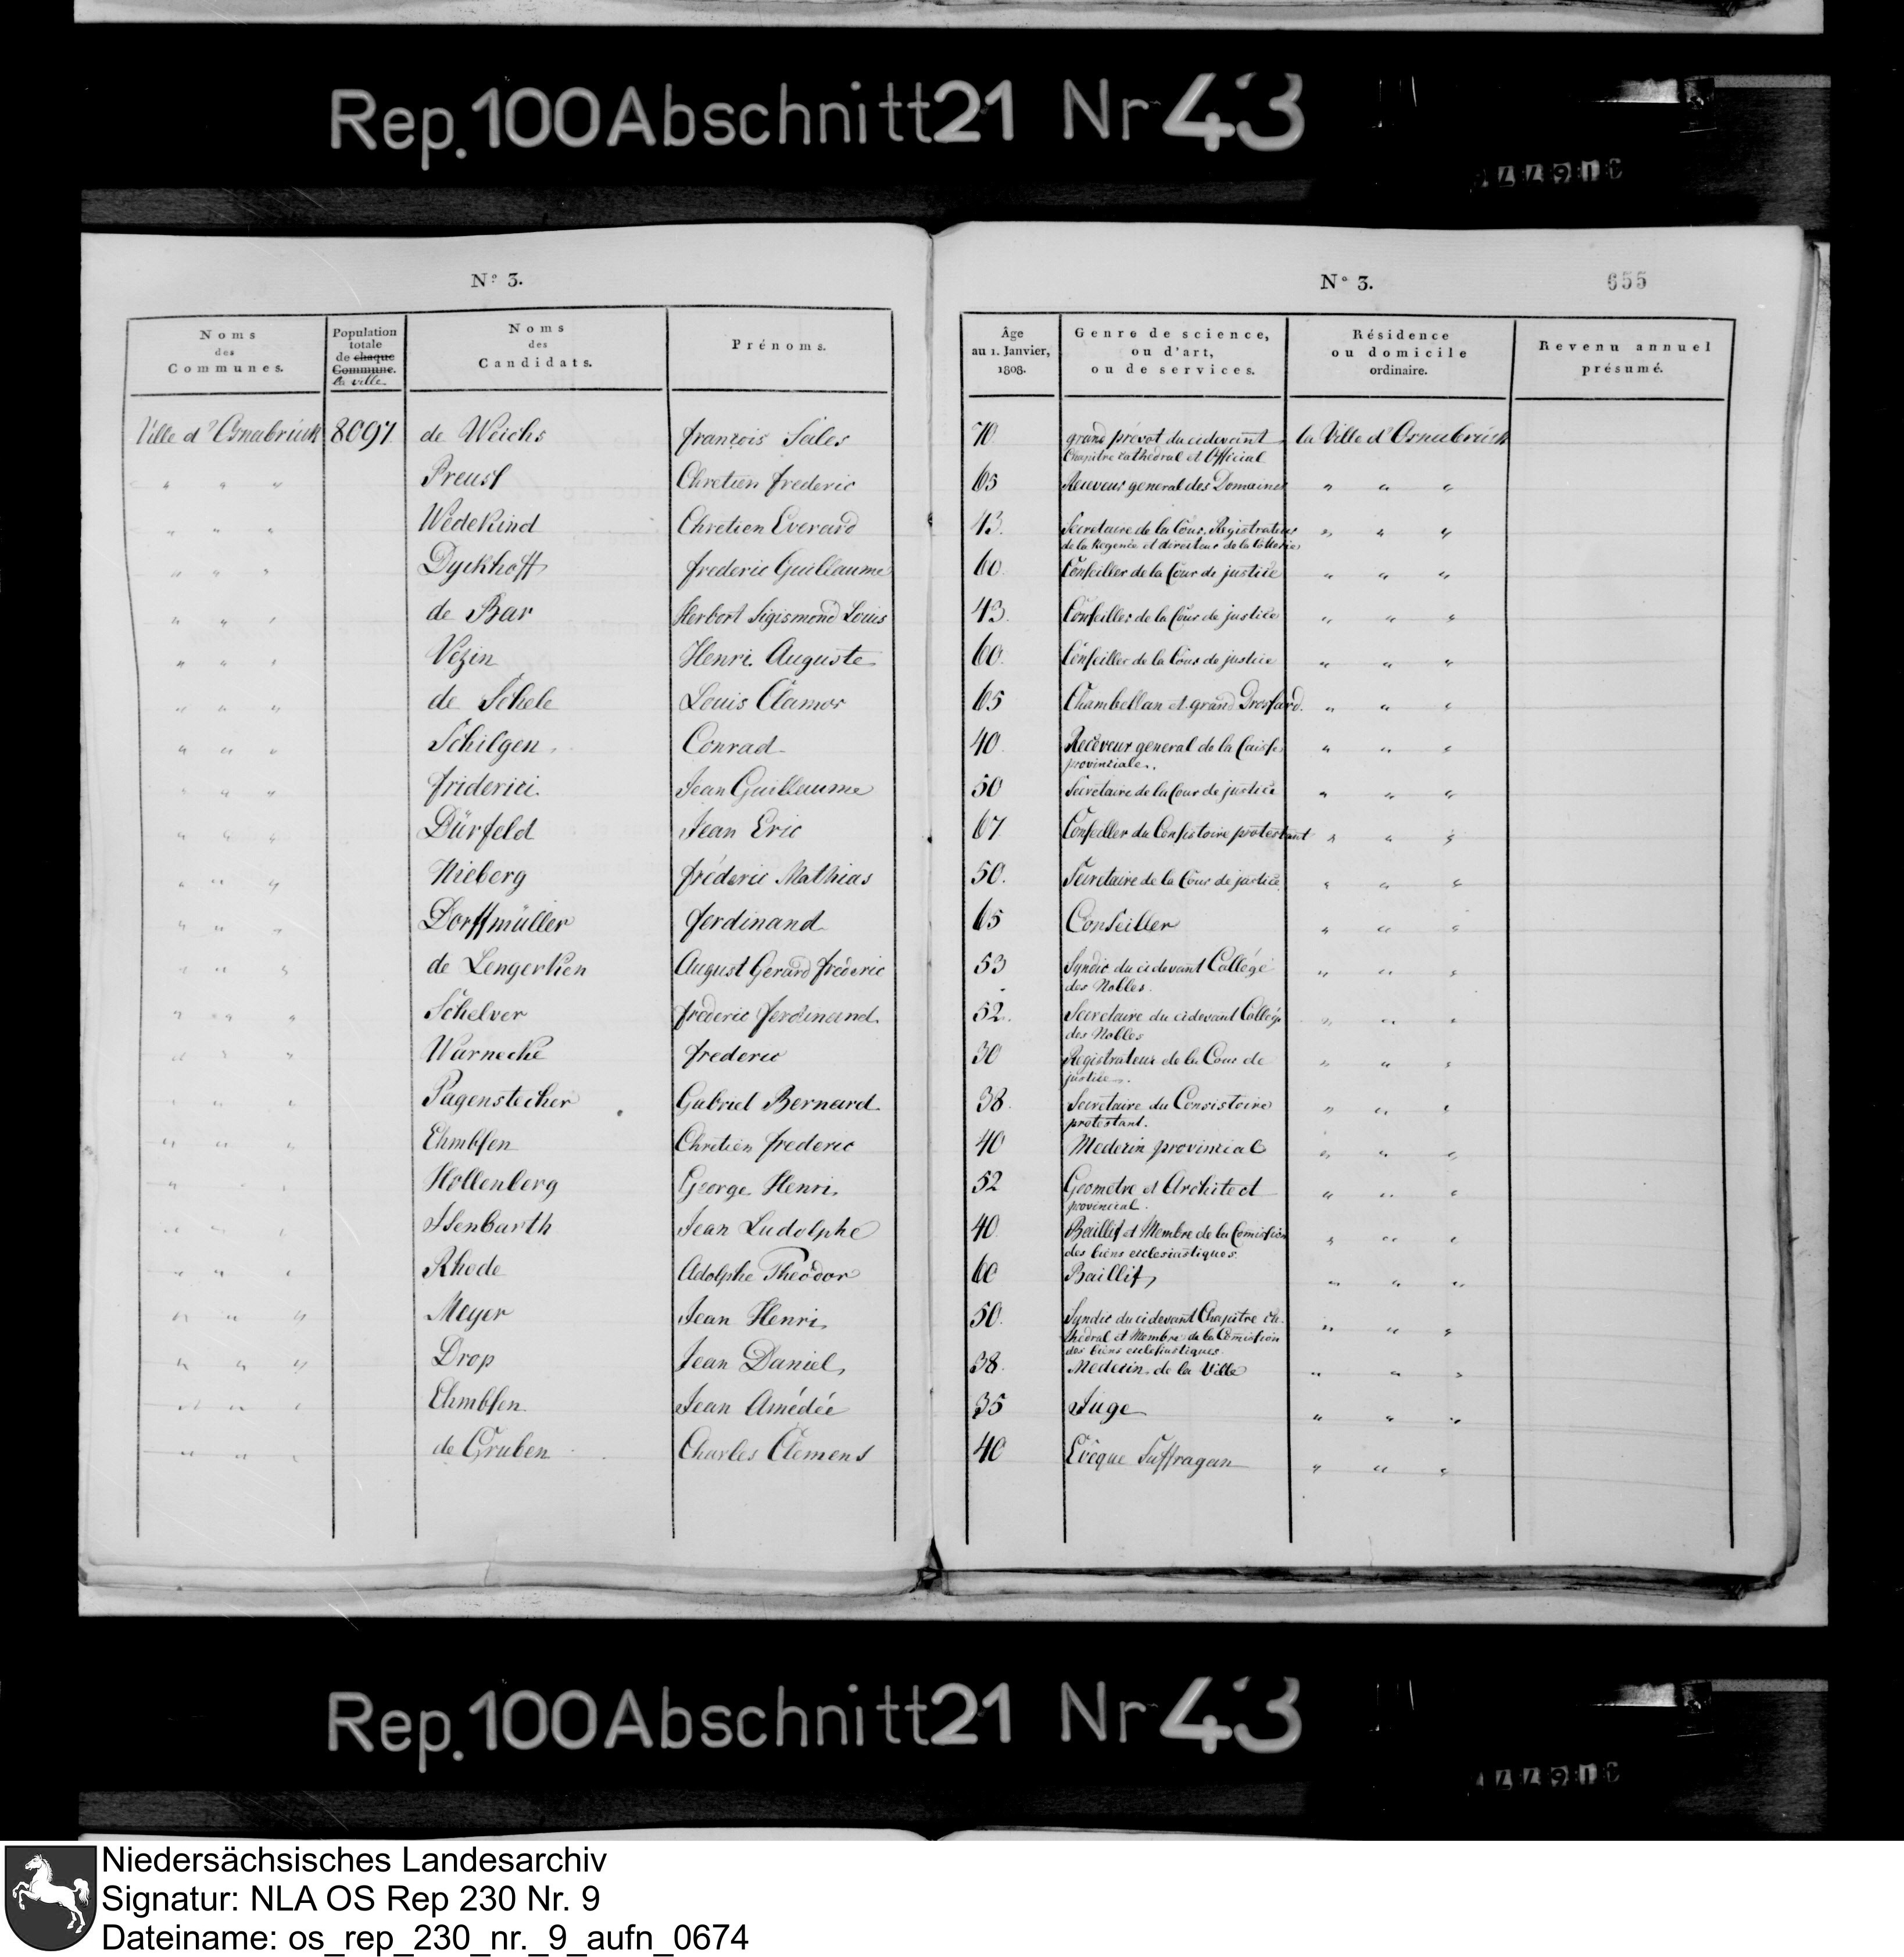 Rep.100Abschnitt21 Nr 43
N° 3.
Noms des Communes.
Population totale de chaque Commune. la ville
Noms des Candidats.
Prénoms.
N° 3.
655
Âge au 1. Janvier, 1808.
Genre de science, ou d'art, ou de services.
Résidence ou domicile ordinaire.
Revenu annuel présumé.
Ville d'Osnabrück 8097 de Weichs françois Sales 70 grand prévot du cidevant la Ville d'Osnabrück
Chapitre cathedral et Official
" " " Preuss Chretien frederic 65 Receveur general des Domaines " " "
" " " Wedekind Chretien Everard 43. Secretaire de la Cour, Registrateur " " "
de la Regence et directeur de la Lotterie
" " " Dyckhoff frederic Guillaume 60 Conseiller de la Cour de justice " " "
" " " de Bar Herbort Sigismond Louis 43. Conseiller de la Cour de justice " " "
" " " Vezin Henri Auguste 60. Conseiller de la Cour de justice " " "
" " " de Schele Louis Clamor 65 Chambellan et grand Drossard. " " "
" " " Schilgen Conrad 40. Receveur general de la Caisse " " "
provinciale.
" " " friderici. Jean Guillaume 50 Secretaire de la Cour de justice " " "
" " " Dürfeld Jean Eric 67 Conseiller du Consistoire protestant " " "
" " " Nieberg fréderic Mathias 50. Secretaire de la Cour de justice " " "
" " " Dorffmüller ferdinand 65 Conseiller " " "
" " " de Lengerken August Gerard fréderic 53 Syndic du cidevant Collége " " "
des Nobles.
" " " Schelver fréderic ferdinand. 52. Secretaire du cidevant Collége " " "
des Nobles
" " " Warnecke frederic 30 Registrateur de la Cour de " " "
justice.
" " " Pagenstecher Gabriel Bernard. 38. Secretaire du Consistoire " " "
protestant.
" " " Ehmbsen Chretien frederic 40 Medecin provincial " " "
" " " Hollenberg George Henri 52 Geometre et Architect " " "
provincial.
" " " Isenbarth Jean Ludolphe 40. Baillif et Membre de la Comission " " "
des biens ecclesiastiques.
" " " Rhode Adolphe Theodor 60 Baillif " " "
" " " Meyer Jean Henri 50. Syndic du cidevant Chapitre ca- " " "
thedral et Membre de la Comission
des biens eclesiastiques.
" " " Drop Jean Daniel 38. Medecin de la Ville " " "
" " " Ehmbsen Jean Amédée 35 Juge " " "
" " " de Gruben Charles Clemens 40 Evêque Suffragan " " "
Rep.100Abschnitt21 Nr 43
Niedersächsisches Landesarchiv
Signatur: NLA OS Rep 230 Nr. 9
Dateiname: os_rep_230_nr._9_aufn_0674